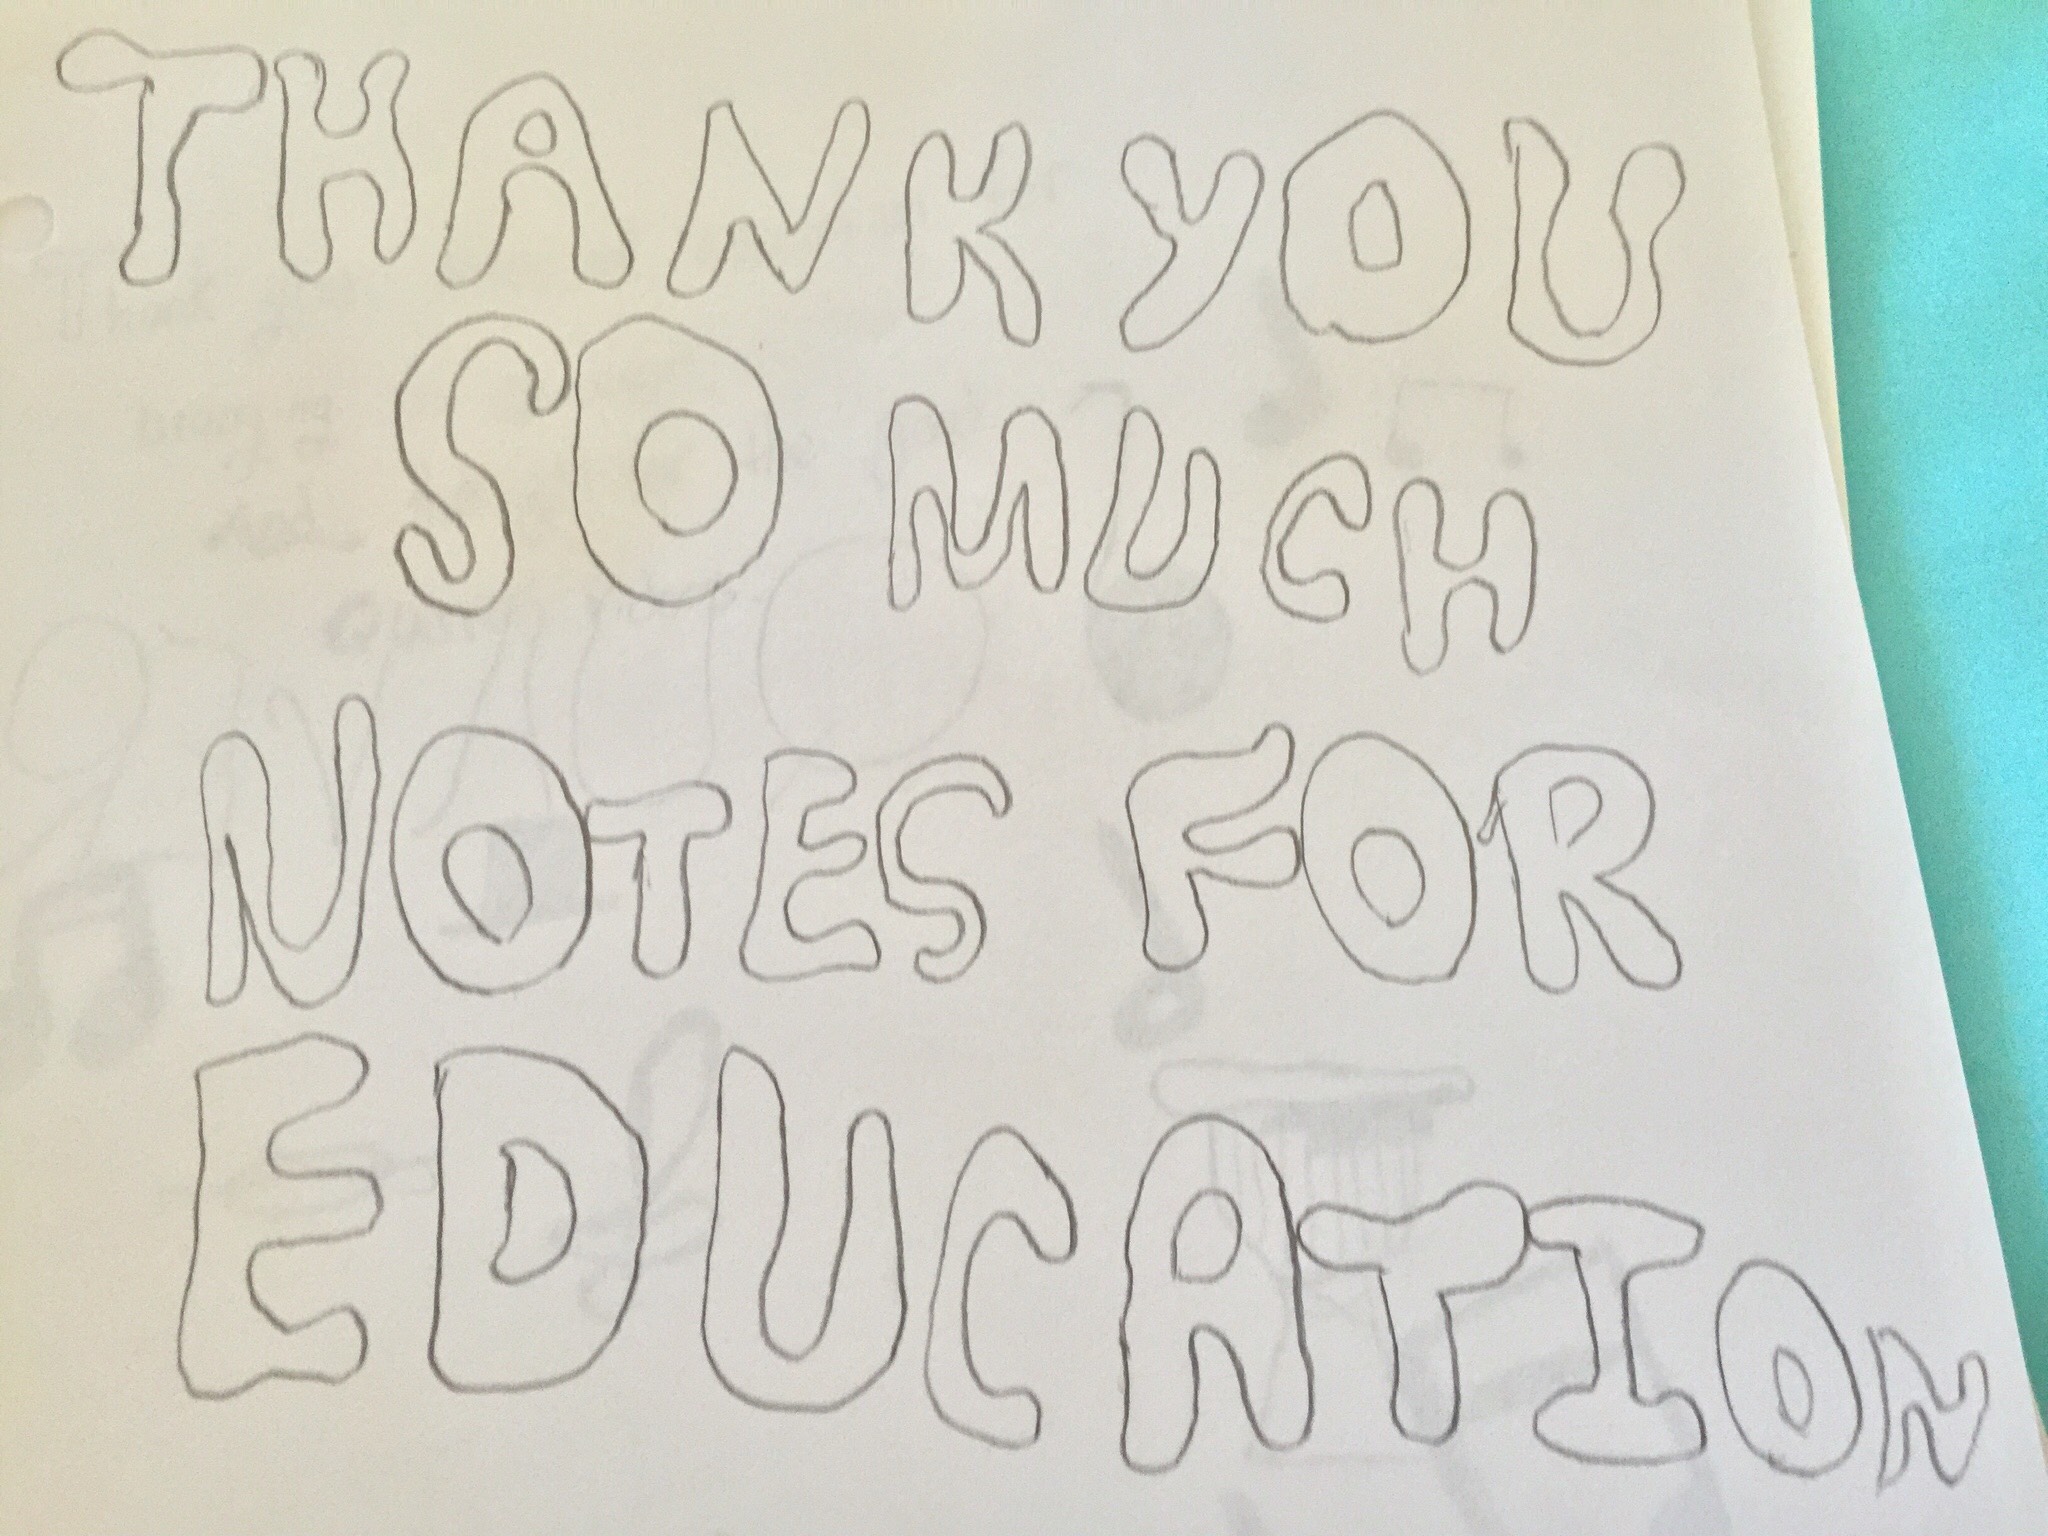 THANK YOU
SO MUCH
NOTES FOR
EDUCATION